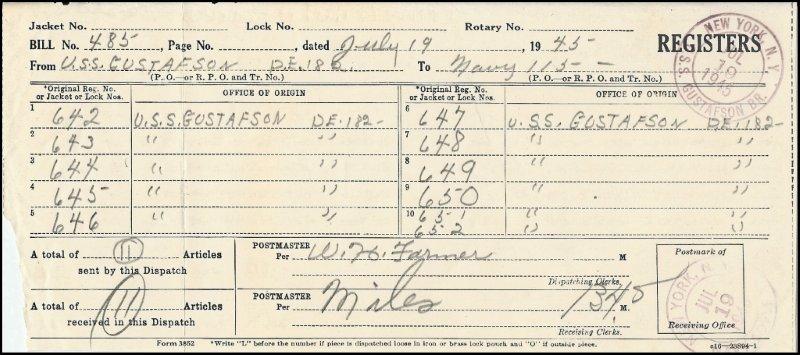 Jacket No. Lock No. Rotary No.
BILL No. 485, Page No. , dated July 19, 1945 REGISTERS
From U.S.S. GUSTAFSON D.E. 182 To Navy 115
(P. O.—or R. P. O. and Tr. No.) (P. O.—or R. P. O. and Tr. No.)
NEW YORK, N.Y.
JUL
19
1945
U.S.S. GUSTAFSON BR.
*Original Reg. No. or Jacket or Lock Nos. OFFICE OF ORIGIN *Original Reg. No. or Jacket or Lock Nos. OFFICE OF ORIGIN
1 642 U.S.S. GUSTAFSON DE.182- 6 647 U.S.S. GUSTAFSON DE.182-
2 643 " " 7 648 " "
3 644 " " 8 649 " "
4 645 " " 9 650 " "
5 646 " " 10 651 " "
652 " "
A total of 11 Articles sent by this Dispatch
POSTMASTER
Per W. H. Farmer M
Dispatching Clerks.
A total of 11 Articles received in this Dispatch
POSTMASTER
Per Miles 1345 M.
Receiving Clerks.
Postmark of
YORK, N.
JUL
19
Receiving Office
Form 3852 *Write "L" before the number if piece is dispatched loose in iron or brass lock pouch and "O" if outside piece. c16—23894-1